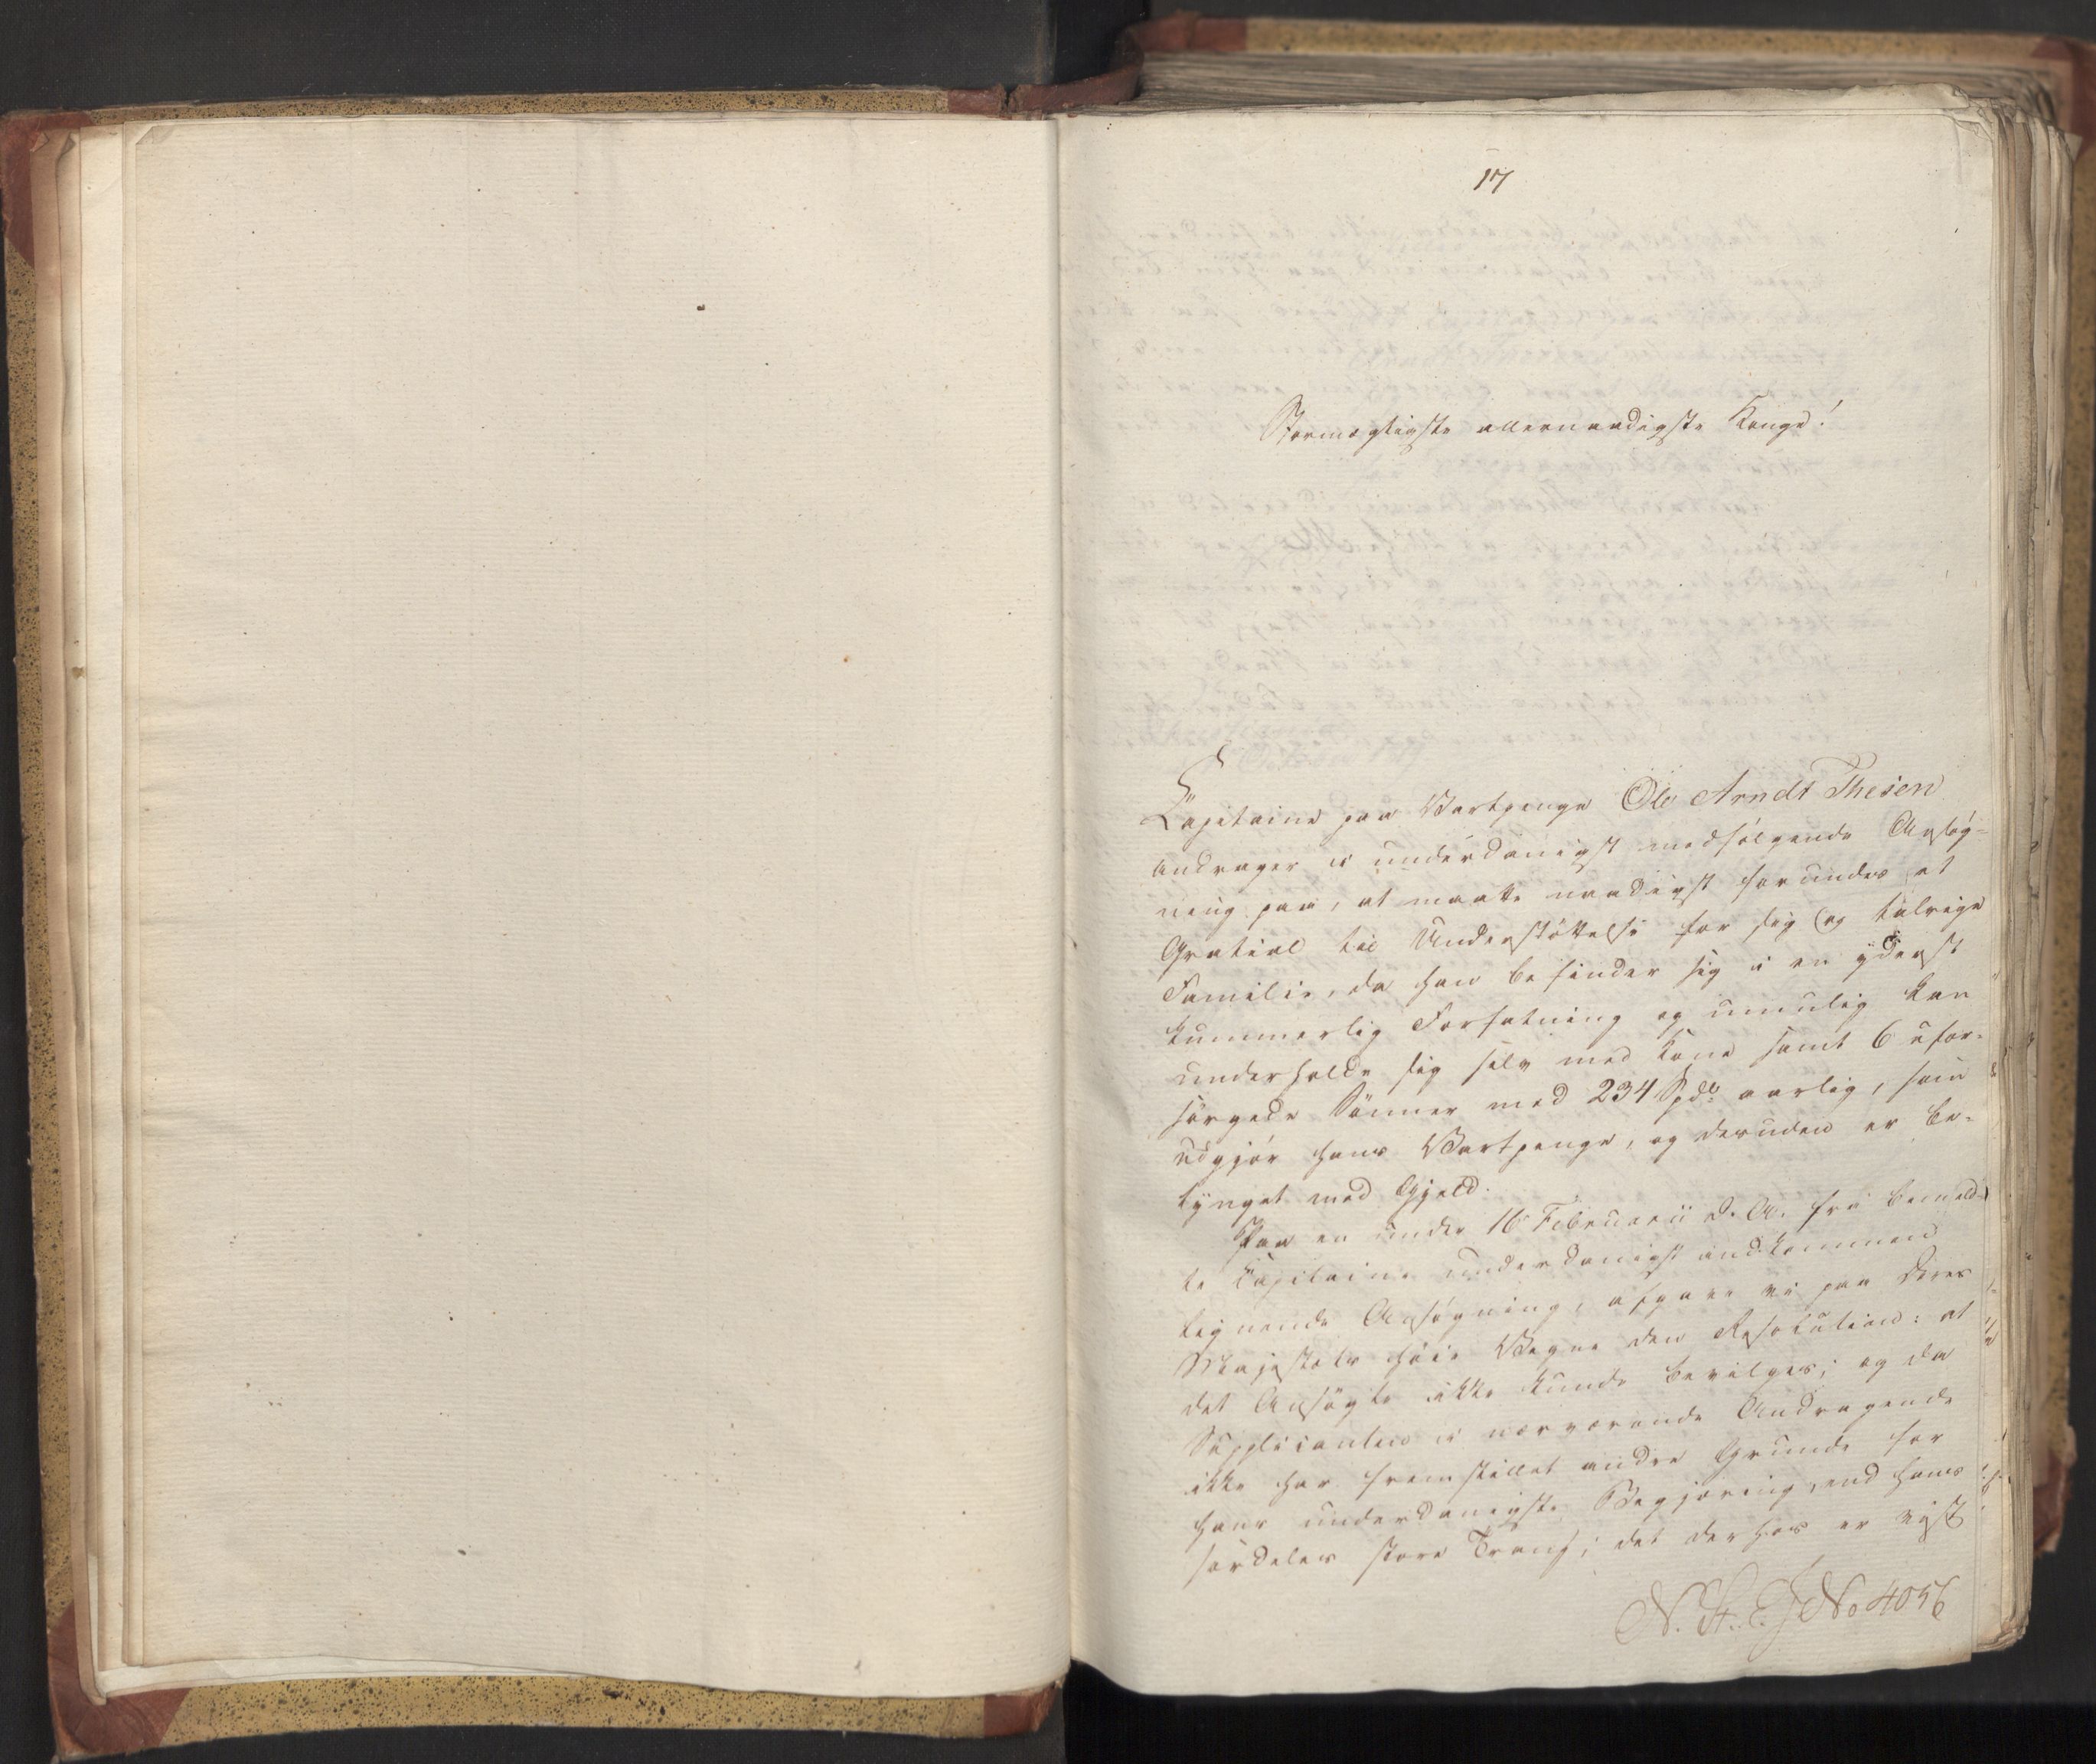 17
Stormægtigste allernaadigste Konge!
Capitaine paa Vartpenge Ole Arndt Thesen
andrager i underdanigst medfølgende Ansøg-
ning paa, at maatte naadigst forundes et
Gratial til Understøttelse for sig og talrige
Familie, da han befinder sig i en yderst
kummerlig Forfatning og umulig kan
underholde sig selv med Kone samt 6 ufor-
sørgede Sønner med 234 Spdlr aarlig, som
udgjør hans Vartpenge, og desuden er be-
tynget med Gjeld.
Paa en under 16 Februarii d. A. fra bemeld-
te Capitaine underdanigst indkommen
lignende Ansøgning, afgave vi paa Deres
Majestæts høie Vegne den Resolution: at
det Ansøgte ikke kunde bevilges; og da
Supplicanten i nærværende Andragende
ikke har fremstillet andre Grunde for
hans underdanigste Begjæring, end hans
særdeles store Trang; det derhos er vist
N. St. E. J No 4056